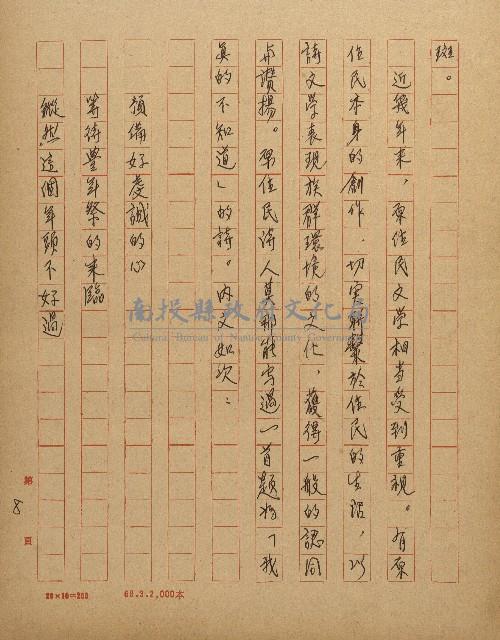 斑。
近幾年來，原住民文學相當受到重視。有原
住民本身的創作，切實聯繫於住民的生活，以
詩文學表現族群環境的文化，獲得一般的認同
與讚揚。原住民詩人莫那能寫過一首題為「我
真的不知道」的詩。內文如次：
預備好虔誠的心
等待豐年祭的來臨
縱然這個年頭不好過
第 8 頁
20×10=200
68.3.2,000本
南投縣政府文化局
Cultural Bureau of Nantou County Government